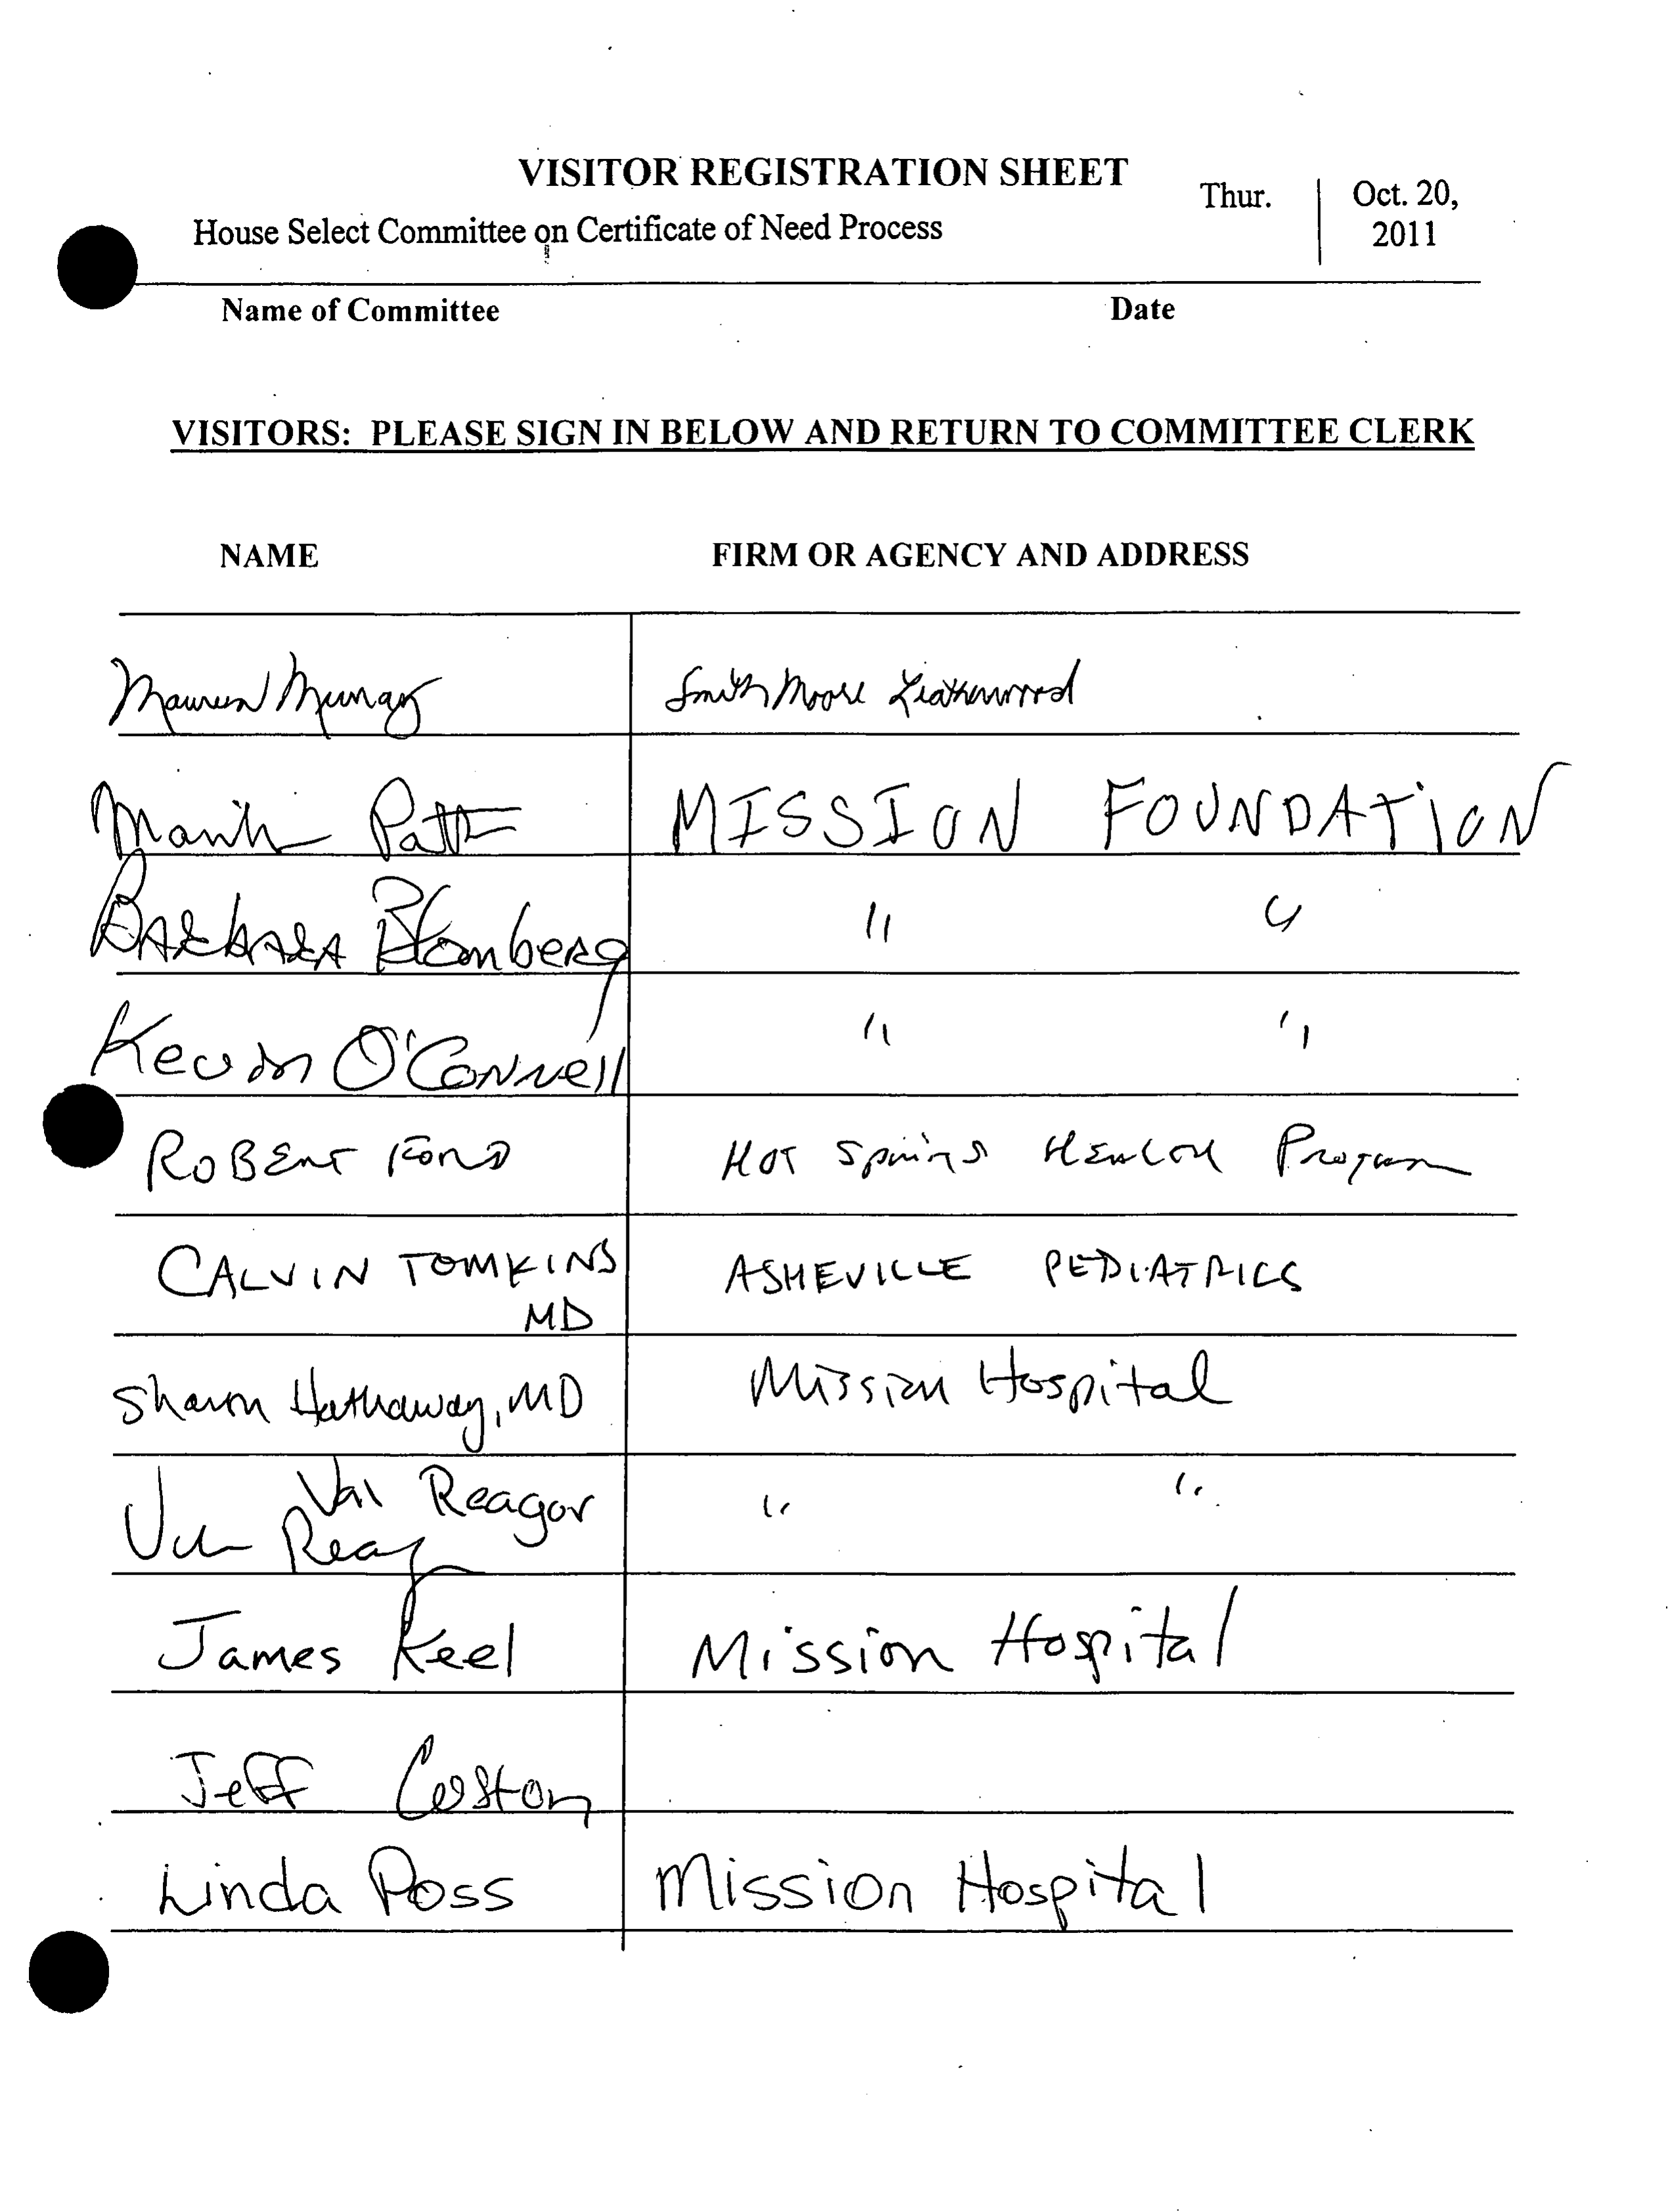 VISITOR REGISTRATION SHEET
Thur. Oct. 20,
2011
House Select Committee on Certificate of Need Process
Name of Committee Date
VISITORS: PLEASE SIGN IN BELOW AND RETURN TO COMMITTEE CLERK
NAME FIRM OR AGENCY AND ADDRESS
Maureen Murray Smith Moore Leatherwood
MISSION FOUNDATION
Barbara Blomberg " "
Kevin O'Connell " "
ROBERT FORD HOT Springs HEALTH Program
CALVIN TOMKINS ASHEVILLE PEDIATRICS
MD
Sharon Hathaway, MD Mission Hospital
Val Reagor " "
James Keel Mission Hospital
Jeff
Linda Poss Mission Hospital